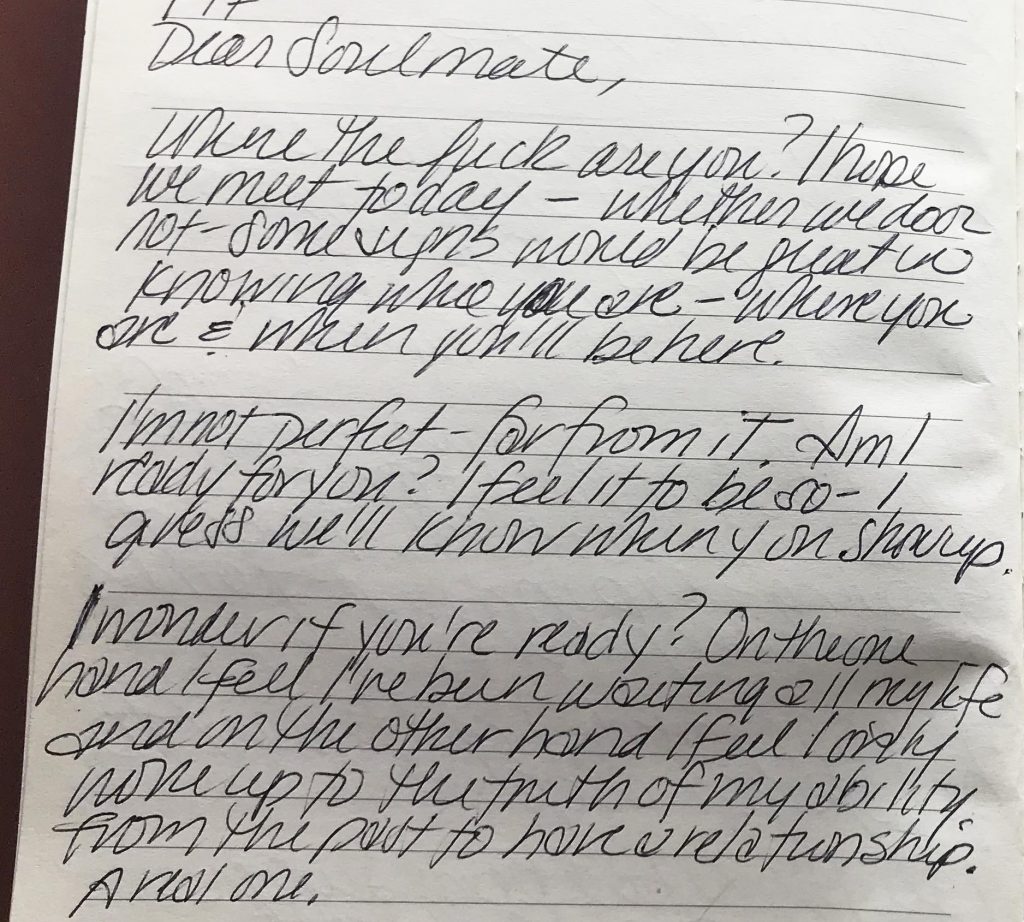 Dear Soulmate,
Where the fuck are you? I hope
we meet today - whether we do or
not - some signs would be great in
knowing who you are - where you
are & when you'll be here.
I'm not perfect - far from it. Am I
ready for you? I feel it to be so - I
guess we'll know when you show up.
I wonder if you're ready? On the one
hand I feel I've been waiting all my life
and on the other hand I feel I only
woke up to the truth of my ability.
from the past to have a relationship.
A real one.